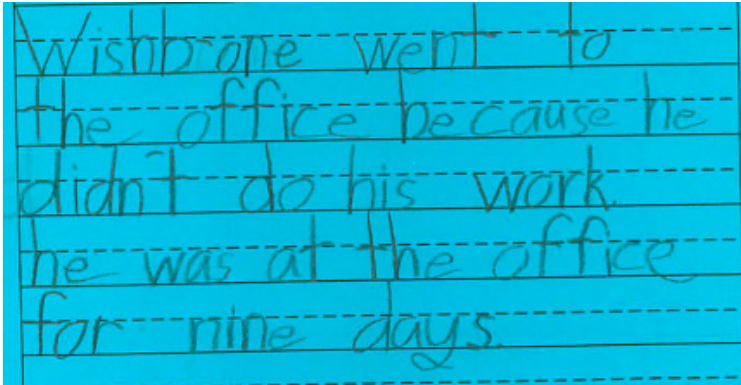 Wishbone went to
the office because he
didn't do his work.
he was at the office
for nine days.